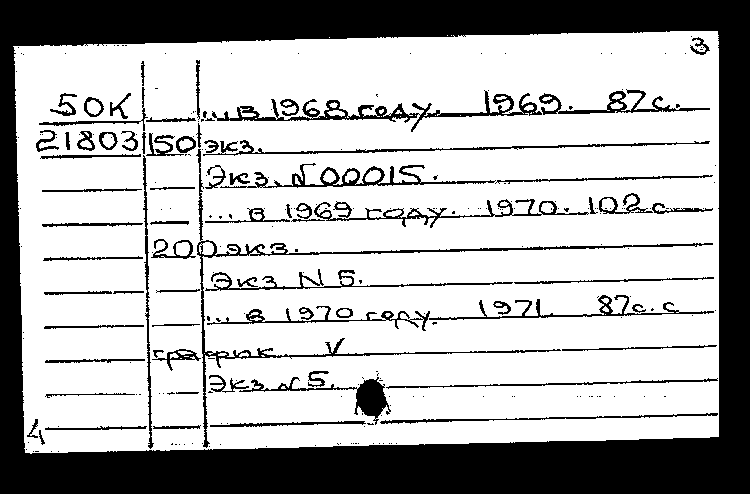 3
50К ... в 1968 году. 1969. 87с.
21803 150 экз.
Экз. N00015.
... в 1969 году. 1970. 102с
200 экз.
Экз N 5.
... в 1970 году. 1971. 87с. с
график V
Экз N 5.
4